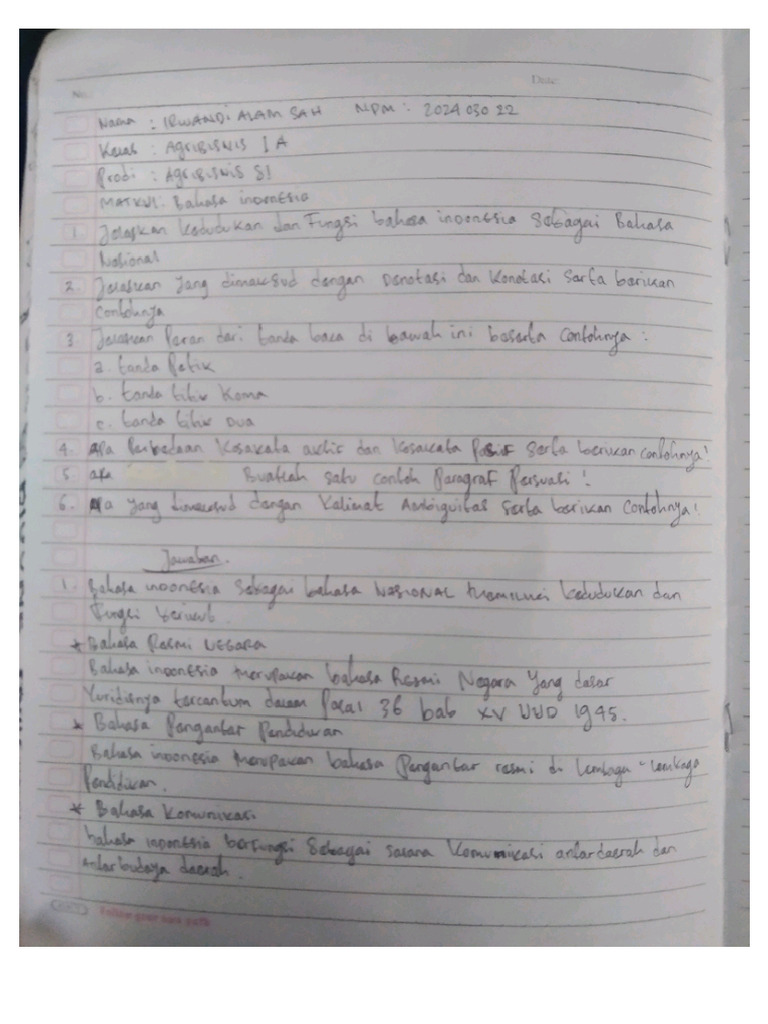 No.
Date:
Nama : IRWANDI ALAM SAH NPM : 202403022
Kelas : AGRIBISNIS I A
Prodi : AGRIBISNIS S1
MATKUL : Bahasa indonesia
1. Jelaskan kedudukan dan Fungsi bahasa indonesia Sebagai Bahasa
Nasional
2. Jelaskan yang dimaksud dengan Denotasi dan Konotasi Serta berikan
Contohnya
3. Jelaskan Peran dari tanda baca di bawah ini beserta Contohnya :
a. tanda Petik
b. tanda titik Koma
c. tanda titik Dua
4. apa Perbedaan Kosakata aktif dan Kosakata Pasif Serta berikan contohnya!
5. Buatlah satu contoh Paragraf Persuasi !
6. apa yang dimaksud dengan Kalimat Ambiguitas Serta berikan Contohnya!
Jawaban.
1. Bahasa indonesia Sebagai bahasa NASIONAL Memiliki kedudukan dan
Fungsi berikut.
* Bahasa Resmi NEGARA
Bahasa indonesia Merupakan bahasa Resmi Negara yang dasar
Yuridisnya tercantum dalam Pasal 36 bab XV UUD 1945.
* Bahasa Pengantar Pendidikan
Bahasa indonesia Merupakan bahasa Pengantar resmi di lembaga - lembaga
Pendidikan.
* Bahasa Komunikasi
bahasa indonesia berfungsi Sebagai sarana Komunikasi antardaerah dan
antarbudaya daerah.
Follow your own path